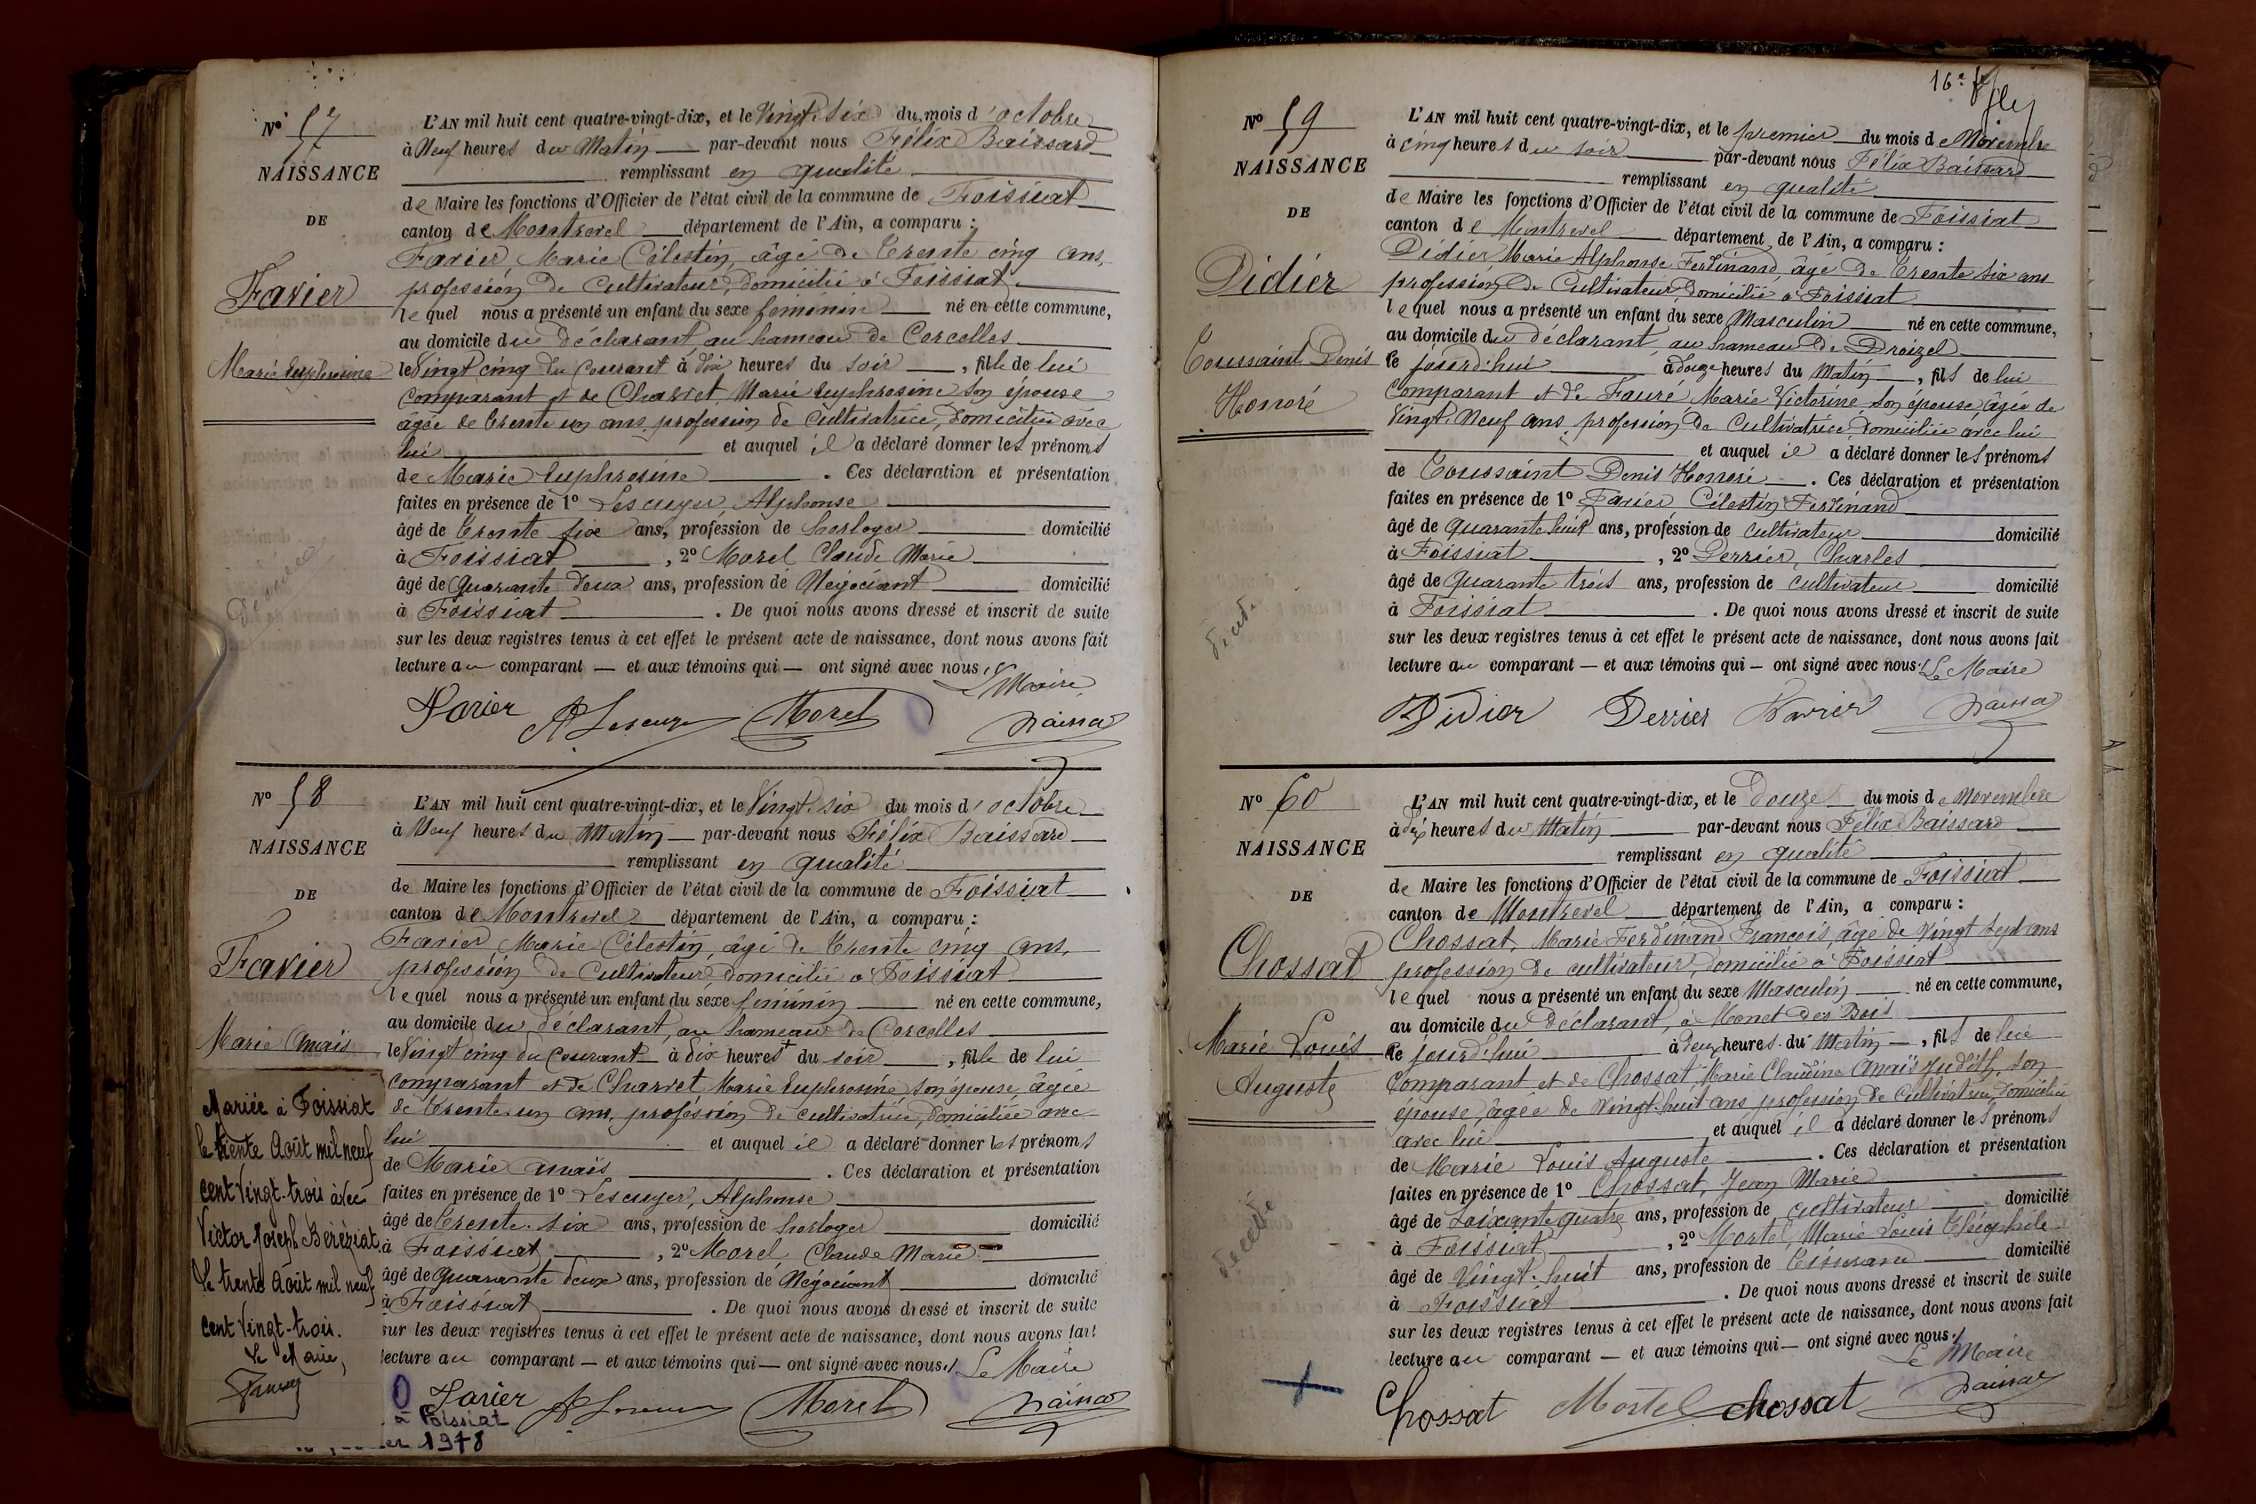 Nº 57
NAISSANCE
DE
Favier
Marie Euphrosine
L'AN mil huit cent quatre-vingt-dix, et le Vingt-six du mois d'octobre
à Neuf heures du Matin — par-devant nous Félix Baissard
remplissant en qualité
de Maire les fonctions d'Officier de l'état civil de la commune de Foissiat
canton de Montrevel département de l'Ain, a comparu :
Favier Marie Célestin, âgé de trente cinq ans,
profession de Cultivateur, domicilié à Foissiat
lequel nous a présenté un enfant du sexe féminin né en cette commune,
au domicile du déclarant, au hameau de Corcelles
le Vingt cinq du courant à dix heures du soir , fille de lui
comparant et de Charvet Marie Euphrosine son épouse
âgée de trente un ans, profession de cultivatrice, domiciliée avec
lui et auquel il a déclaré donner les prénoms
de Marie Euphrosine . Ces déclaration et présentation
faites en présence de 1º Lescuyer, Alphonse
âgé de trente six ans, profession de horloger domicilié
à Foissiat , 2º Morel Claude Marie
âgé de Quarante deux ans, profession de Négociant domicilié
à Foissiat . De quoi nous avons dressé et inscrit de suite
sur les deux registres tenus à cet effet le présent acte de naissance, dont nous avons fait
lecture au comparant — et aux témoins qui — ont signé avec nous. Le Maire
Favier A Lescuyer Morel Baissard
Nº 58
NAISSANCE
DE
Favier
Marie Anaïs
Mariée à Foissiat
le trente Août mil neuf
cent vingt-trois avec
Victor Joseph Béréziat
Le trente Août mil neuf
cent vingt-trois.
Le Maire,
L'AN mil huit cent quatre-vingt-dix, et le Vingt-six du mois d'octobre
à Neuf heures du Matin — par-devant nous Félix Baissard
remplissant en qualité
de Maire les fonctions d'Officier de l'état civil de la commune de Foissiat
canton de Montrevel département de l'Ain, a comparu :
Favier Marie Célestin, âgé de trente cinq ans,
profession de Cultivateur, domicilié à Foissiat
lequel nous a présenté un enfant du sexe féminin né en cette commune,
au domicile du déclarant, au hameau de Corcelles
le Vingt cinq du courant à dix heures du soir , fille de lui
comparant et de Charvet Marie Euphrosine son épouse, âgée
de trente un ans, profession de cultivatrice, domiciliée avec
lui et auquel il a déclaré donner les prénoms
de Marie Anaïs . Ces déclaration et présentation
faites en présence de 1º Lescuyer, Alphonse
âgé de trente-six ans, profession de horloger domicilié
à Foissiat , 2º Morel Claude Marie
âgé de quarante deux ans, profession de Négociant domicilié
à Foissiat . De quoi nous avons dressé et inscrit de suite
sur les deux registres tenus à cet effet le présent acte de naissance, dont nous avons fait
lecture au comparant — et aux témoins qui — ont signé avec nous. Le Maire
Favier A Lescuyer Morel Baissard
à Foissiat
1978
16e
Nº 59
NAISSANCE
DE
Didier
Toussaint Denis
Honoré
L'AN mil huit cent quatre-vingt-dix, et le premier du mois de Novembre
à cinq heures du soir par-devant nous Félix Baissard
remplissant en qualité
de Maire les fonctions d'Officier de l'état civil de la commune de Foissiat
canton de Montrevel département de l'Ain, a comparu :
Didier Marie Alphonse Ferdinand âgé de trente six ans
profession de Cultivateur, domicilié à Foissiat
lequel nous a présenté un enfant du sexe Masculin né en cette commune,
au domicile du déclarant, au hameau de Droizel
le jourd'hui à douze heures du Matin , fils de lui
comparant et de Fauré Marie Victorine son épouse, âgée de
Vingt-Neuf ans, profession de Cultivatrice, domiciliée avec lui
et auquel il a déclaré donner les prénoms
de Toussaint Denis Honoré . Ces déclaration et présentation
faites en présence de 1º Favier Célestin Ferdinand
âgé de quarante huit ans, profession de cultivateur domicilié
à Foissiat , 2º Derrier, Charles
âgé de quarante trois ans, profession de cultivateur domicilié
à Foissiat . De quoi nous avons dressé et inscrit de suite
sur les deux registres tenus à cet effet le présent acte de naissance, dont nous avons fait
lecture au comparant — et aux témoins qui — ont signé avec nous. Le Maire
Didier Derrier Favier Baissard
Nº 60
NAISSANCE
DE
Chossat
Marie Louis
Auguste
décédé
L'AN mil huit cent quatre-vingt-dix, et le Douze du mois de Novembre
à dix heures du Matin par-devant nous Félix Baissard
remplissant en qualité
de Maire les fonctions d'Officier de l'état civil de la commune de Foissiat
canton de Montrevel département de l'Ain, a comparu :
Chossat, Marie Ferdinand François, âgé de Vingt sept ans
profession de cultivateur, domicilié à Foissiat
lequel nous a présenté un enfant du sexe Masculin né en cette commune,
au domicile du déclarant, à Monet des Bois
le jourd'hui à deux heures du Matin — , fils de lui
comparant et de Chossat Marie Claudine Anaïs Judith, son
épouse, âgée de Vingt-huit ans, profession de Cultivatrice, domiciliée
avec lui et auquel il a déclaré donner les prénoms
de Marie Louis Auguste . Ces déclaration et présentation
faites en présence de 1º Chossat, Jean Marie
âgé de soixante quatre ans, profession de cultivateur domicilié
à Foissiat , 2º Mortel, Marie Louis Théophile
âgé de Vingt-huit ans, profession de Tisserand domicilié
à Foissiat . De quoi nous avons dressé et inscrit de suite
sur les deux registres tenus à cet effet le présent acte de naissance, dont nous avons fait
lecture au comparant — et aux témoins qui — ont signé avec nous.
Le Maire
Chossat Mortel chossat Baissard